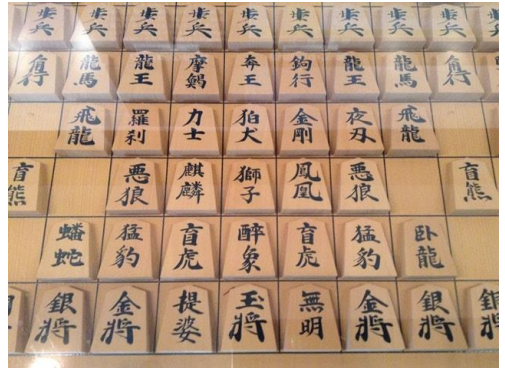 歩兵 歩兵 歩兵 歩兵 歩兵 歩兵 歩兵 歩兵 歩兵
角行 龍馬 龍王 摩𩹄 奔王 鉤行 龍王 龍馬 角行
飛龍 羅刹 力士 狛犬 金剛 夜叉 飛龍
盲熊 悪狼 麒麟 獅子 鳳凰 悪狼 盲熊
蟠蛇 猛豹 盲虎 酔象 盲虎 猛豹 卧龍
銀将 金将 提婆 玉将 無明 金将 銀将 銅将